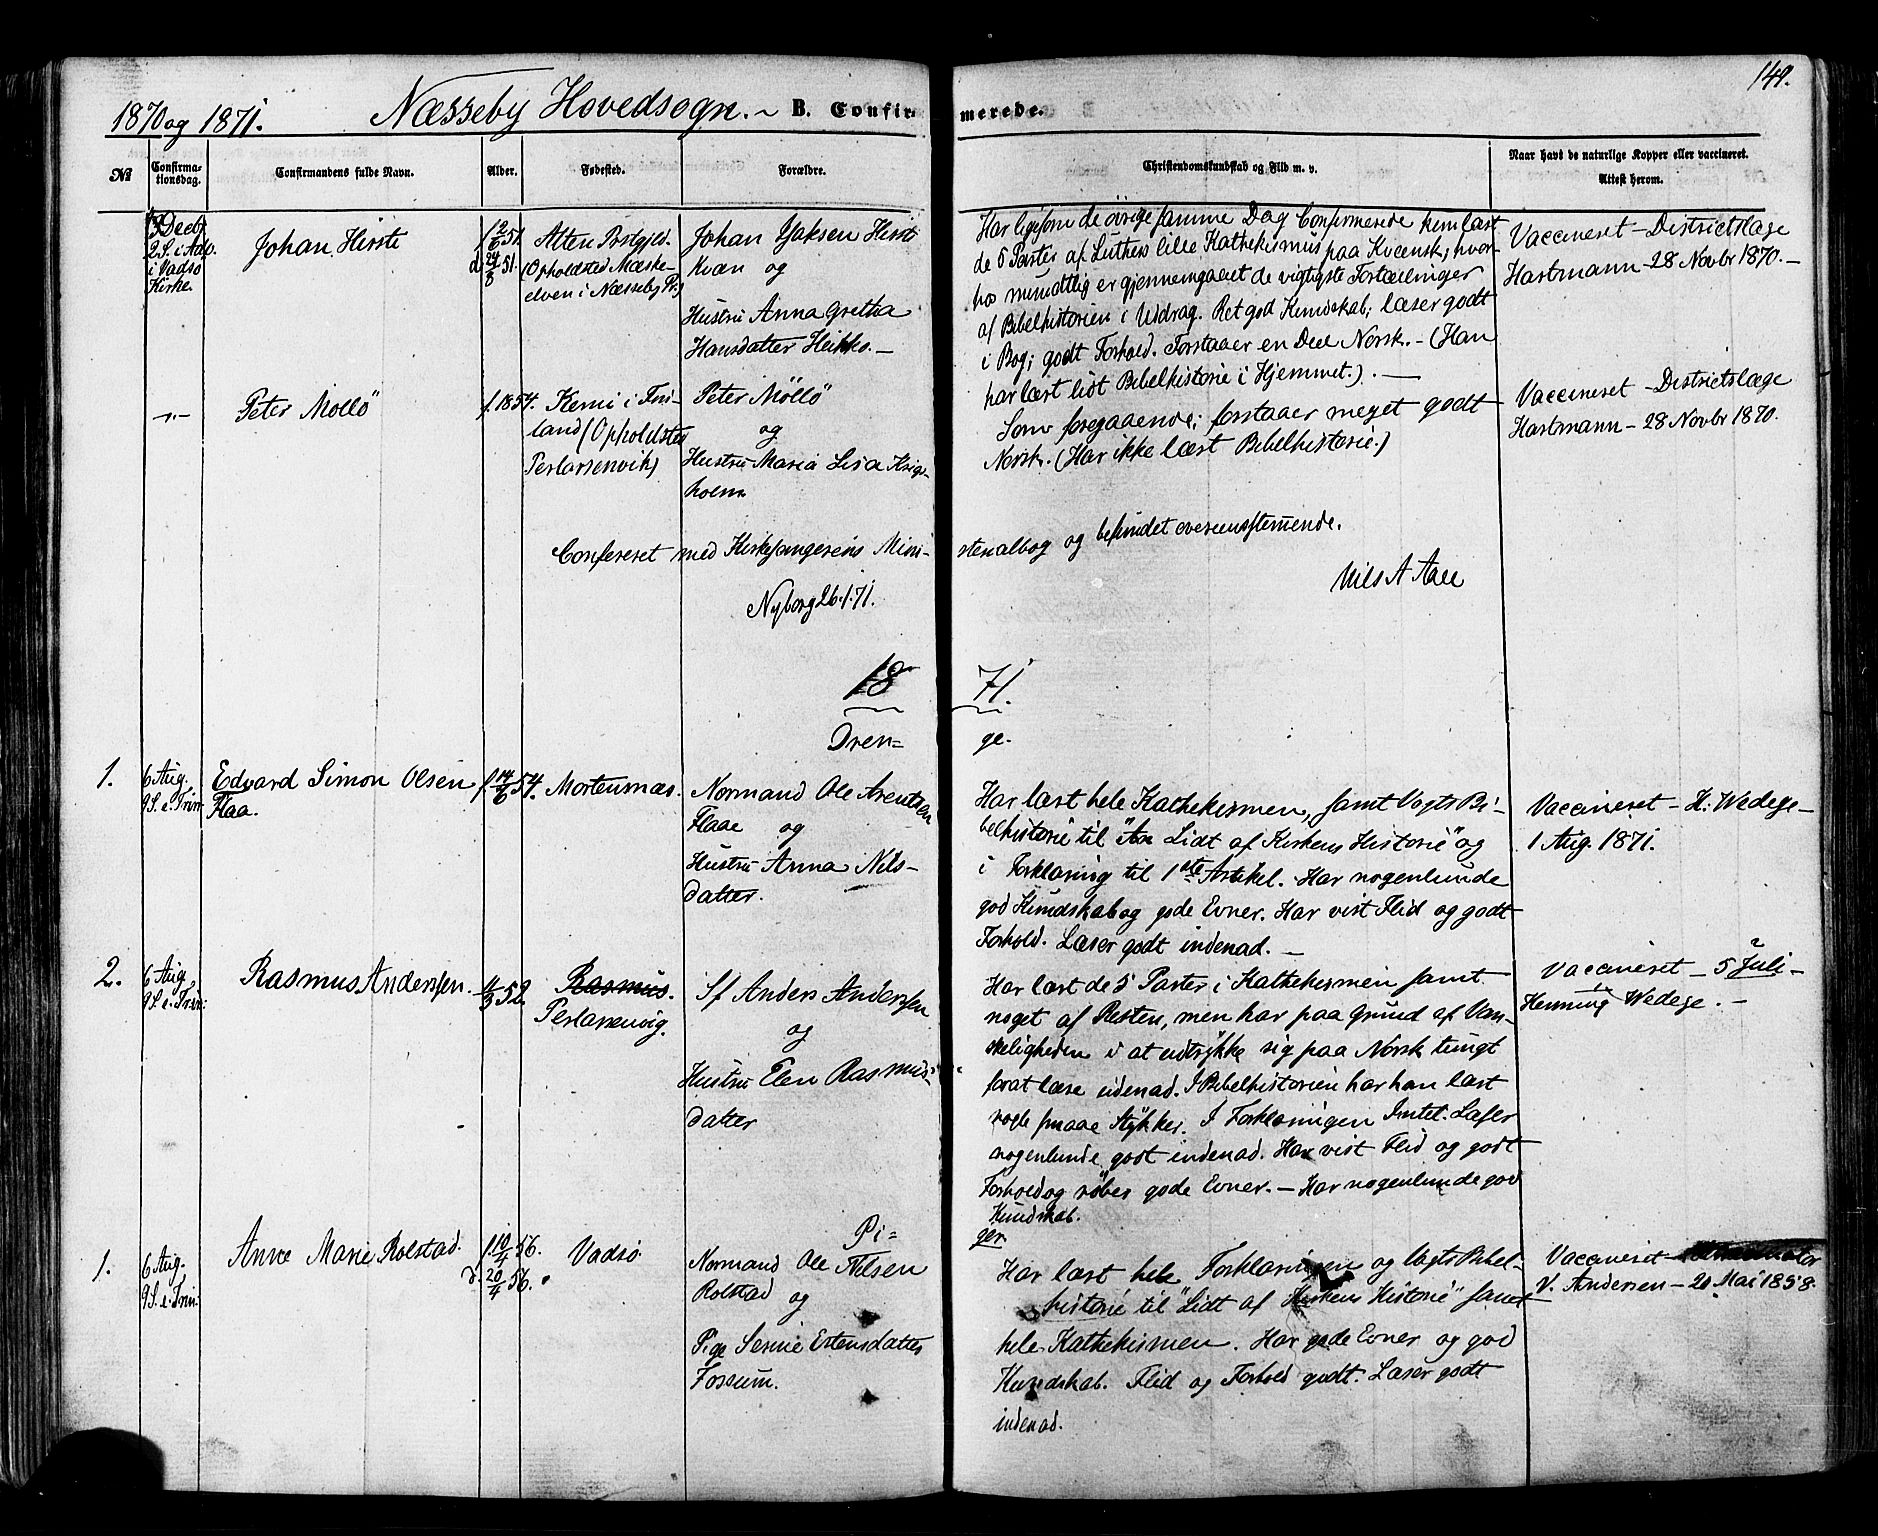 149.
1870 og 1871. Næsseby Hovedsogn. ~ B. Confirmerede.
№ Confirmationsdag. Confirmandens fulde Navn. Alder. Fødested. Forældre. Christendomskundskab og Flid m. v. Naar havt de naturlige Kopper eller vaccineret. Attest herom.
Decbr
2 S. i Adv.
i Vadsø
Kirke.
Johan Hirsti
Alten Præstgjeld.
(Opholdsted Mæske-
elven i Næsseby Pr.)
Johan Isaksen Hirsti
Kvæn og
Hustru Anna Gretha
Hansdatter Heikka. —
Har ligesom de øvrige samme Dag Confirmerede kun læst
de 5 Parter af Luthers lille Kathekismus paa Kvensk, hvor-
hos mundtlig er gjennemgaaet de vigtigste Fortællinger
af Bibelhistorien i Udrag. Ret god Kundskab; læser godt
i Bog; godt Forhold. Forstaaer en Deel Norsk. — (Han
har læst lidt Bibelhistorie i Hjemmet.). —
Vaccineret — Districtslæge
Hartmann — 28 Novbr 1870. —
—"—
Peter Möllö
f. 1854.
Kemi i Fin-
land (Opholdsted
Perlarsenvik)
Peter Möllö
og
Hustru Maria Lisa Krigs-
holm
Som foregaaende; forstaaer meget godt
Norsk. (Har ikke læst Bibelhistorie.)
Vaccineret — Districtslæge
Hartmann — 28 Novbr 1870.
Confereret med Kirkesangerens Ministerialbog og befundet overeensstemmende.
Nyborg 26.1.71.
Nils A Aall
1871.
Drenge.
1.
6 Aug.
9 S. e. Trin.
Edvard Simon Olsen
Flaa.
f. 14/6 54.
Mortensnæs.
Normand Ole Arentsen
Flaae og
Hustru Anna Nils-
datter.
Har læst hele Kathekismen, samt Vogts Bi-
belhistorie til "Lidt af Kirkens Historie" og
i Forklaring til 1ste Artikel. Har nogenlunde
god Kundskab og gode Evner. Har vist Flid og godt
Forhold. Læser godt indenad. —
Vaccineret — H. Wedege —
1 Aug. 1871.
2.
6 Aug
9 S. e. Trin.
Rasmus Anderssen.
11/3 52.
Rasmus.
Perlarsenvig.
Sf Anders Anderssen
og
Hustru Elen Rasmus-
datter
Har læst de 5 Parter i Kathekismen samt
noget af Resten, men har paa Grund af Van-
skeligheden i at udtrykke sig paa Norsk tungt
forat læse udenad. I Bibelhistorien har han læst
nogle smaae Stykker. I Forklaringen Intet. Læser
nogenlunde godt indenad. Har vist Flid og godt
Forhold og røber gode Evner. — Har nogenlunde god
Kundskab.
Vaccineret — 5 Juli —
Henning Wedege. —
Piger.
1.
6 Aug.
9 S. e. Trin.
Anne Marie Rolstad.
f. 10/4 56.
d. 20/4 56.
Vadsø
Normand Ole Nilsen
Rolstad og
Pige Serine Estensdatter
Fossum.
Har læst hele Forklaringen og Vogts Bibel-
historie til "Lidt af Kirkens Historie" samt
hele Kathekismen. Har gode Evner og god
Kundskab. Flid og Forhold godt. Læser godt
indenad.
Vaccineret —
V. Andersen — 20 Mai 1858.